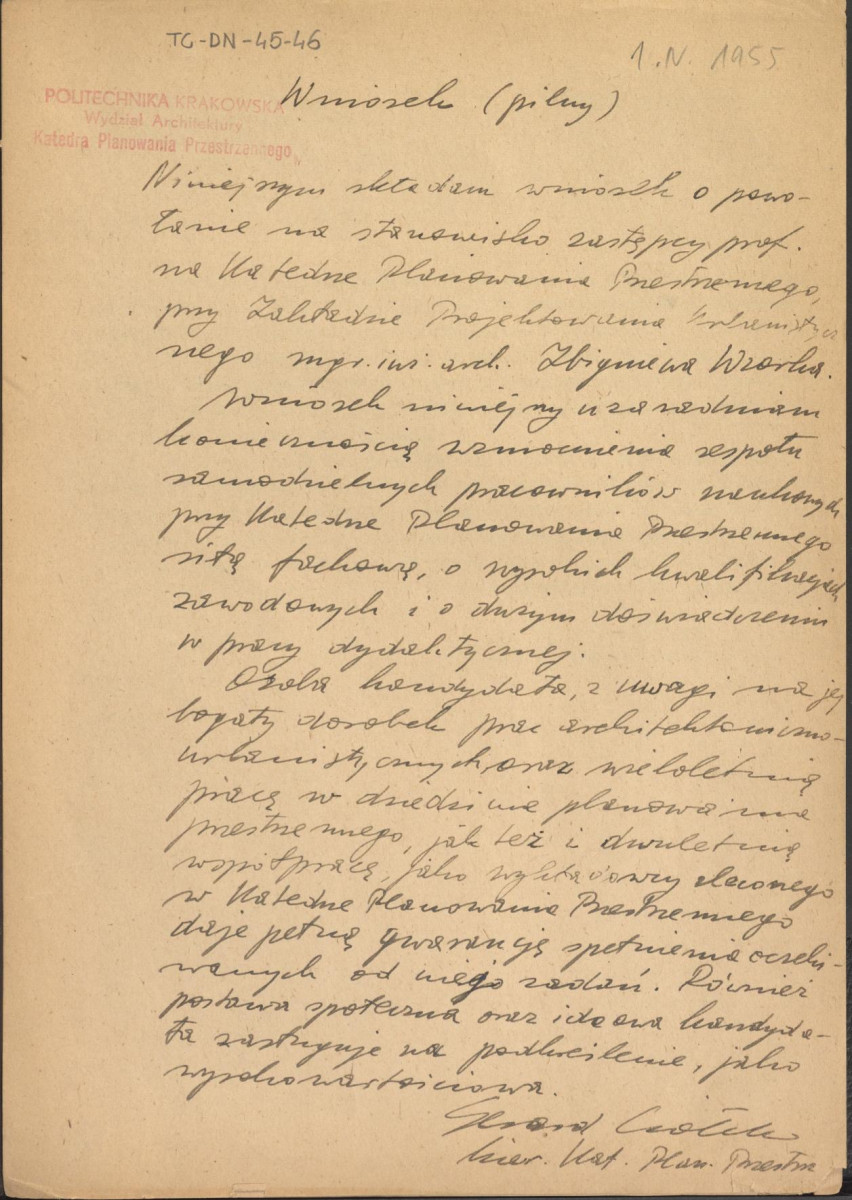 TG-DN-45-46
1.IV.1955
POLITECHNIKA KRAKOWSKA
Wydział Architektury
Katedra Planowania Przestrzennego
Wniosek (pilny)
Niniejszym składam wniosek o powo-
łanie na stanowisko zastępcy prof.
na Katedrze Planowania Przestrzennego,
przy Zakładzie Projektowania Urbanistycz
nego mgr. inż. arch. Zbigniewa Wzorka.
Wniosek niniejszy uzasadniam
koniecznością wzmocnienia zespołu
samodzielnych pracowników naukowych
przy Katedrze Planowania Przestrzennego
siłą fachową, o wysokich kwalifikacjach
zawodowych i o dużym doświadczeniu
w pracy dydaktycznej.
Osoba kandydata, z uwagi na jej
bogaty dorobek prac architektoniczno-
urbanistycznych, oraz wieloletnią
pracą w dziedzinie planowania
przestrzennego, jak też i dwuletnią
współpracę, jako wykładowcy zleconego
w Katedrze Planowania Przestrzennego
daje pełną gwarancję spełnienia oczeki-
wanych od niego zadań. Również
postawa społeczna oraz ideowa kandyda-
ta zasługuje na podkreślenie, jako
wysokowartościowa.
Gerard Ciołek
kier. Kat. Plan. Przestrz